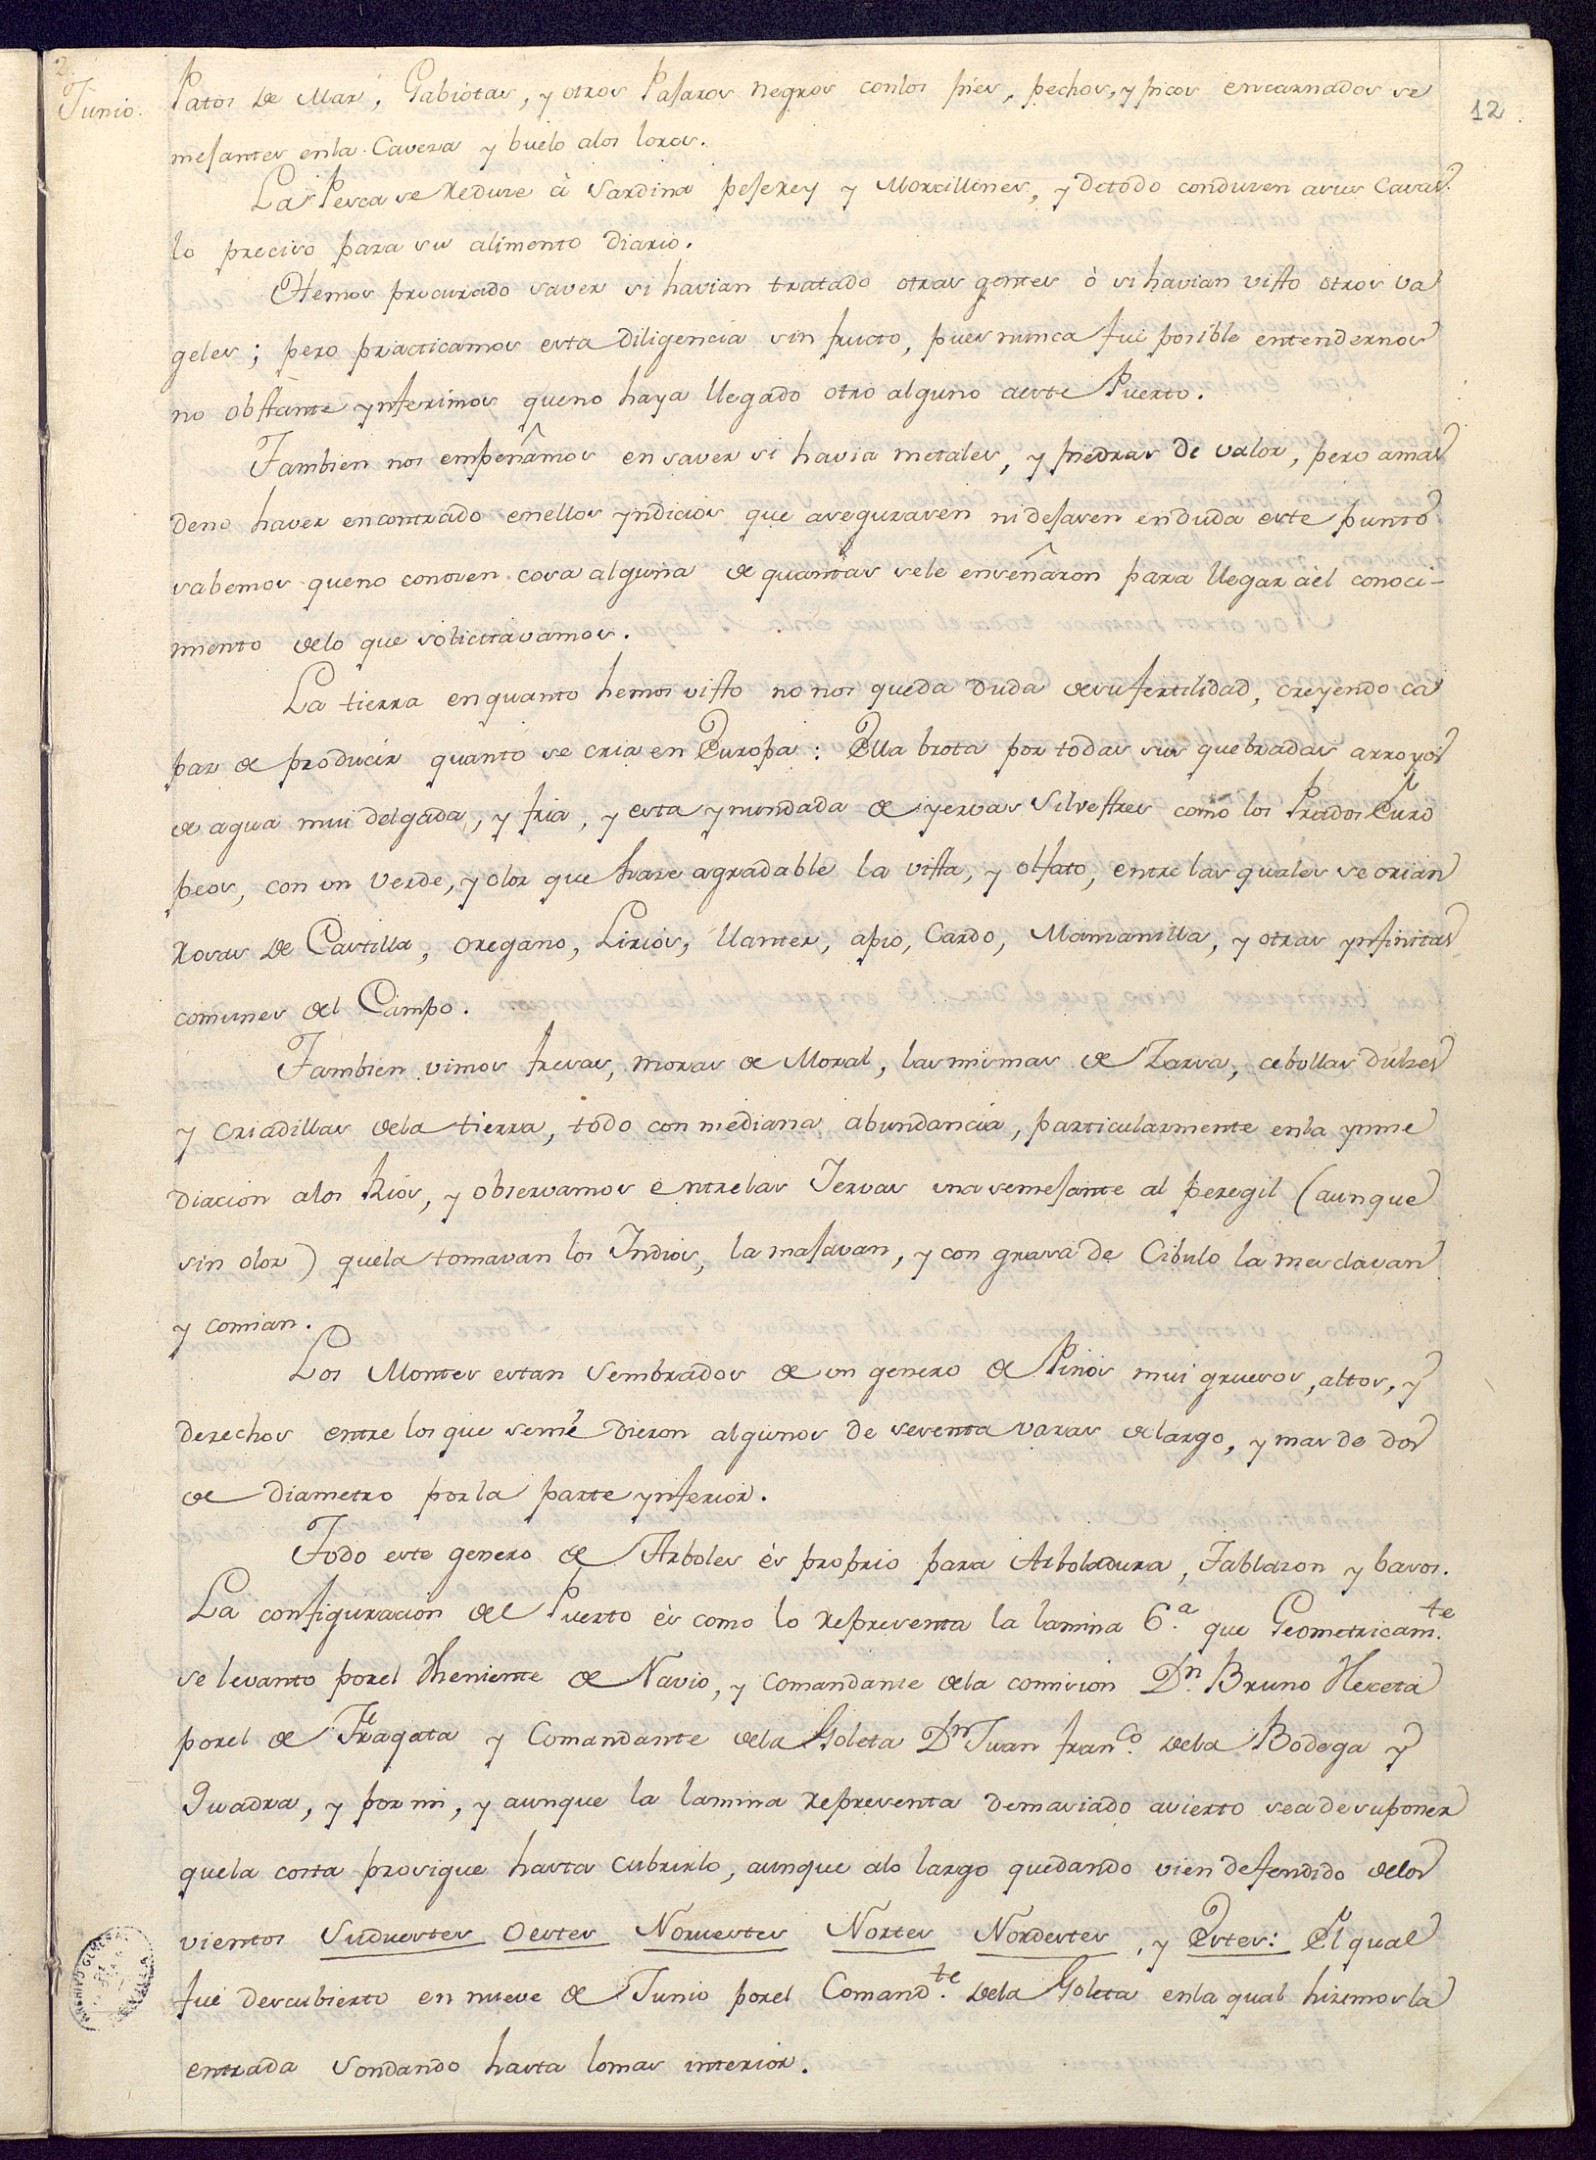 2.
Junio.
12.
Patos de Mar, Gabiotas, y otros Pajaros negros conlos pies, pechos, y picos encarnados se
mejantes enla Cavesa y buelo alos loros.
La Pesca se reduse à Sardina pejerey y Morcillones, y detodo condusen asus Casas
lo preciso para su alimento diario.
Hemos procurado saver si havian tratado otras gentes ò si havian visto otros va
geles; pero practicamos esta diligencia sin fructo, pues nunca fue posible entendernos
no obstante ynferimos queno haya llegado otro alguno aeste Puerto.
Tambien nos empeñamos en saver si havia metales, y piedras de valor, pero amas
deno haver encontrado enellos yndicios que asegurasen nidejasen enduda este punto
sabemos queno conosen cosa alguna de quantas sele enseñaron para llegar àel conoci-
miento delo que solicitavamos.
La tierra enquanto hemos visto no nos queda duda desufertilidad, creyendo ca
paz de producir quanto se cria en Europa: Ella brota por todas sus quebradas arroyos
de agua mui delgada, y fria, y esta ynundada de yervas Silvestres como los Prados Euro
peos, con un verde, y olor que hase agradable la vista, y olfato, entre las quales se crian
Rosas de Castilla, oregano, Lirios, llanten, apio, Cardo, Mansanilla, y otras ynfinitas
comunes del Campo.
Tambien vimos fresas, moras de Moral, las mismas de Zarsa, cebollas dulses
y criadillas dela tierra, todo con mediana abundancia, particularmente enla ynme
diacion alos Rios, y observamos entrelas Iervas una semejante al peregil (aunque
sin olor) quela tomavan los Indios, la majavan, y con grasa de Cibulo la mesclavan
y comian.
Los Montes estan Sembrados de un genero de Pinos mui gruesos, altos, y
derechos entre los que seme dieron algunos de sesenta varas delargo, y mas de dos
de diametro por la parte ynferior.
Todo este genero de Arboles es proprio para Arboladura, Tablazon y basos.
La configuracion del Puerto es como lo representa la lamina 6.ª que Geometricam.te
se levanto porel theniente de Navio, y comandante dela comision D.n Bruno Heceta
porel de Fragata y Comandante dela Goleta D.n Juan fran.co dela Bodega y
Quadra, y por mi, y aunque la lamina representa demasiado avierto sea de suponer
quela costa prosigue hasta cubrirlo, aunque alo largo quedando vien defendido delos
vientos Suduestes Oestes Noruestes Nortes Nordestes, y Estes: El qual
fue descubierto en nueve de Junio porel Comand.te dela Goleta enla qual hizimos la
entrada sondando hasta lomas interior.